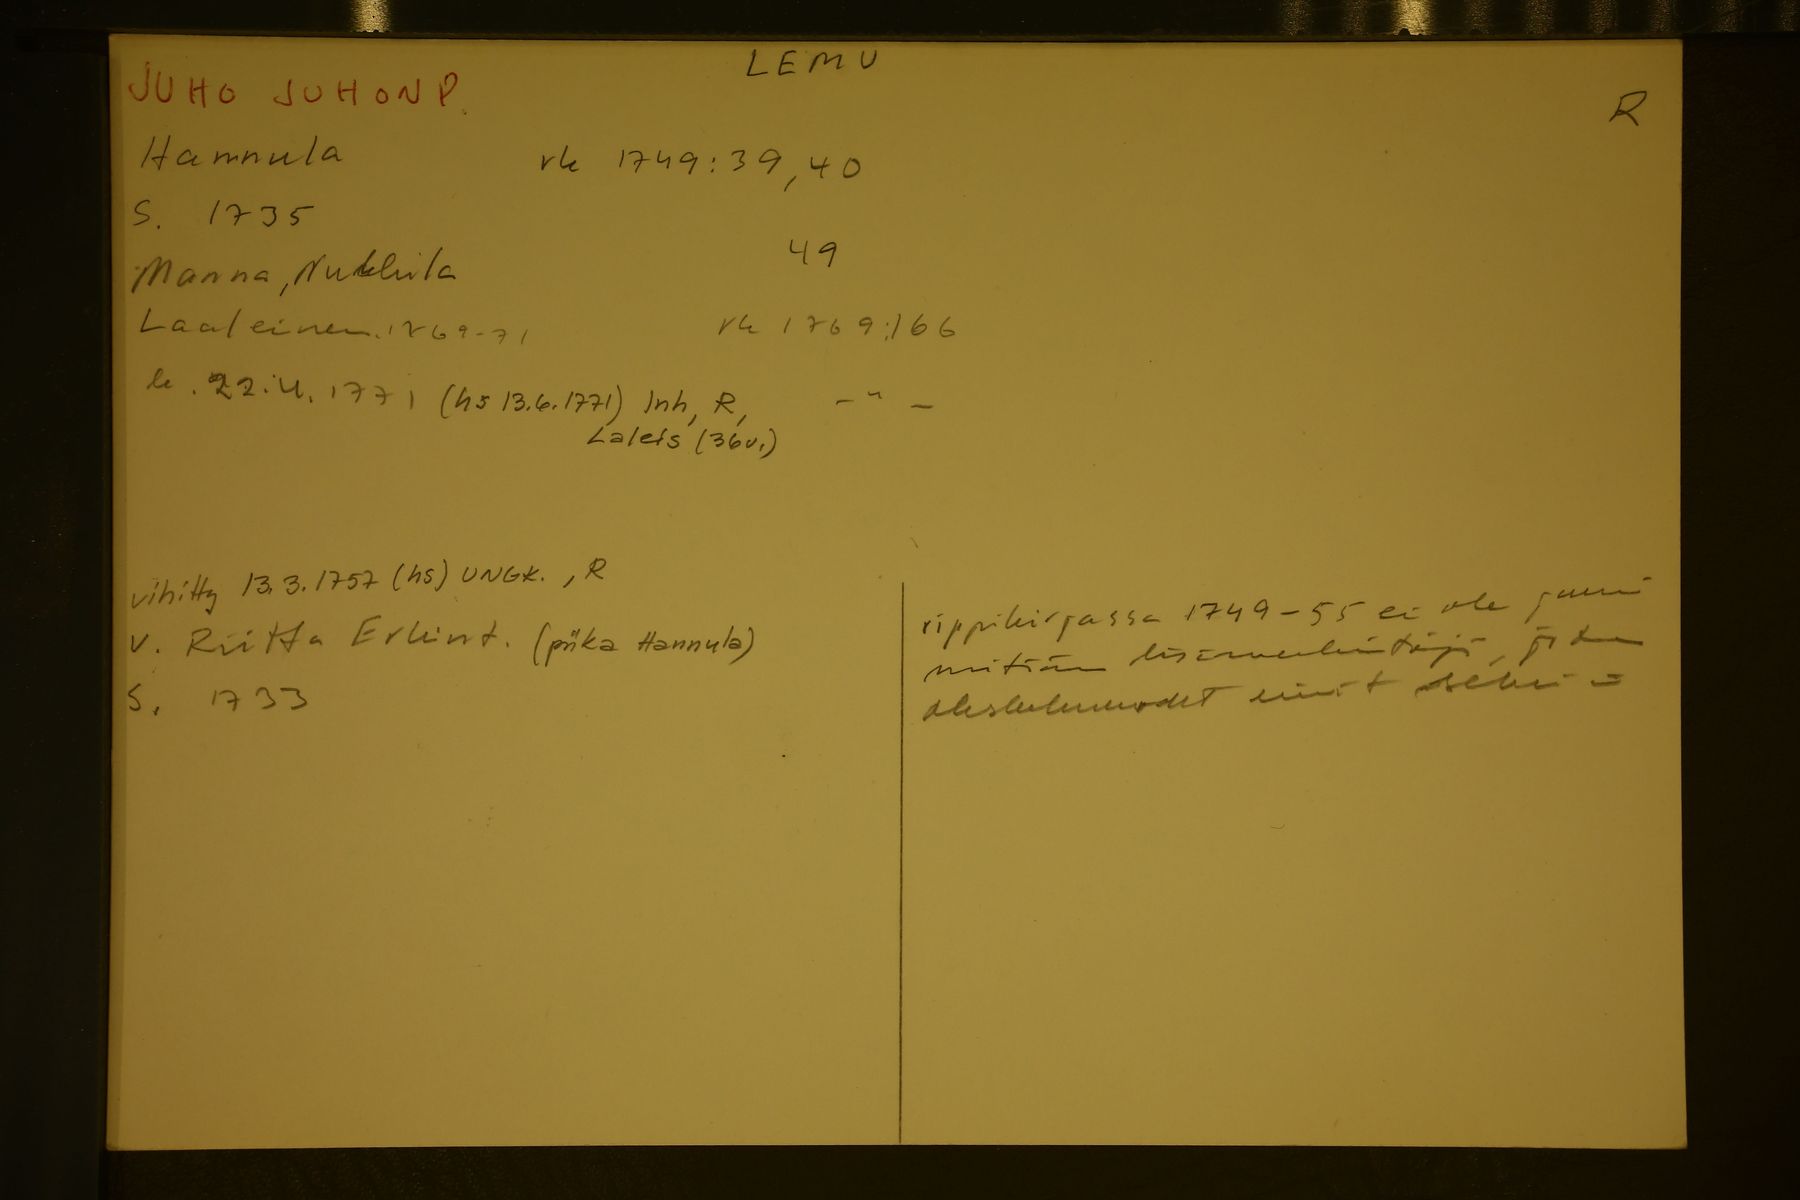 LEMU
JUHO JUHONP.
R
Hannula rk 1749:39,40
S. 1735
49
Manna, Nukkila
Laaleinen. 1769-71 rk 1769:166
k. 22.4.1771 (hs 13.6.1771) Inh, R, -"-
Laleis (36v.)
vihitty 13.3.1757 (hs) UNGK., R
v. Riitta Erkint. (piika Hannula)
S. 1733
rippikirjassa 1749-55 ei ole juuri
mitään lisämerkintöjä, joten
oleskeluvuodet eivät selviä